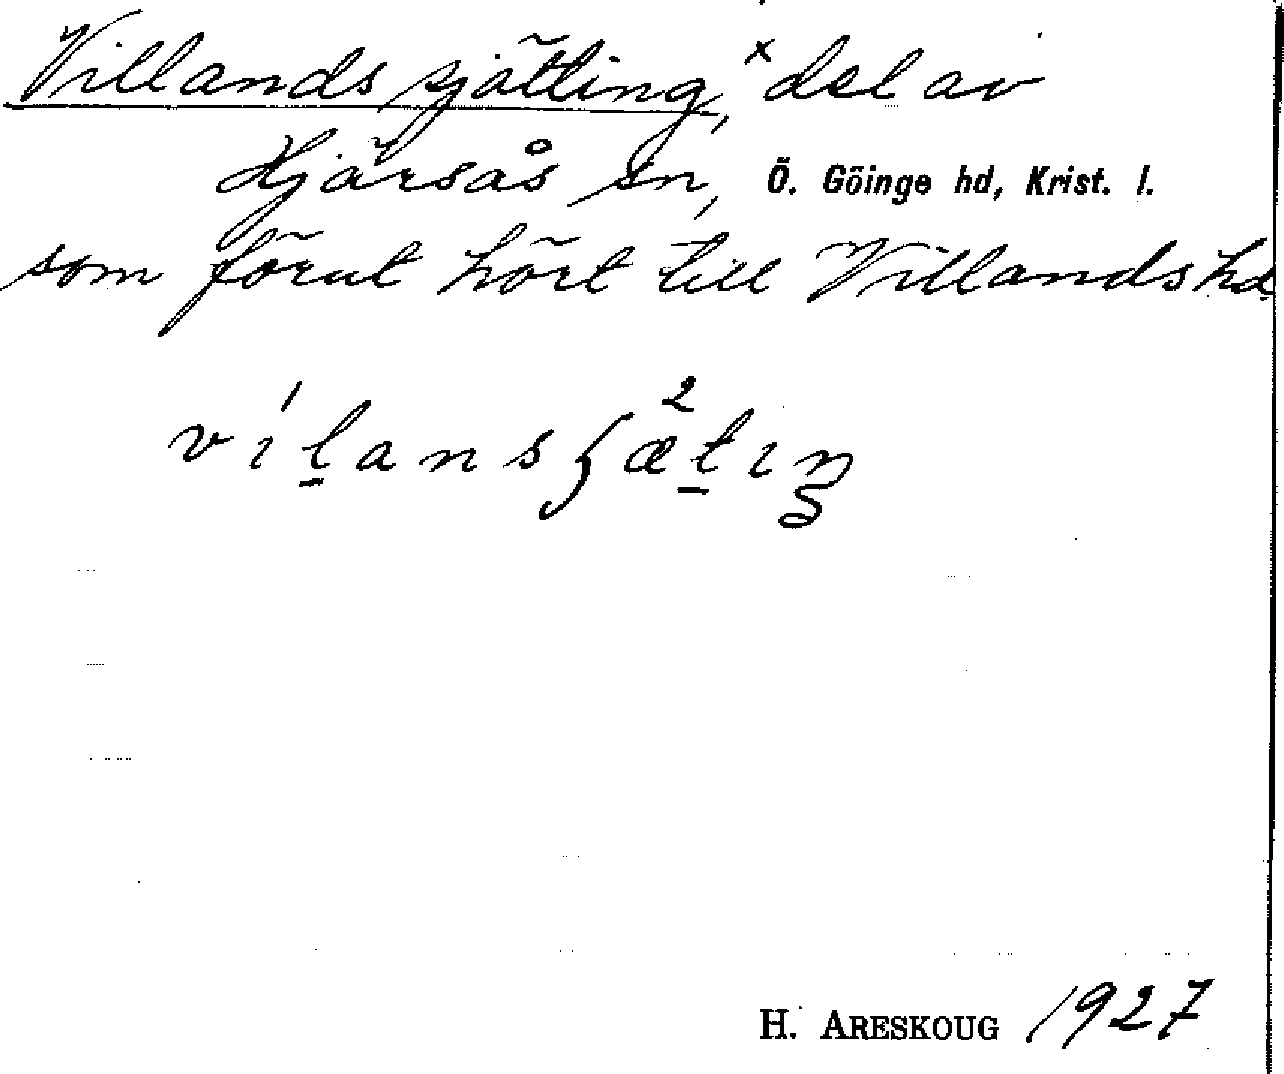 Villands sjätting, x del av
Hjärsås sn, Ö. Göinge hd, Krist. l.
som förut hört till Villands hd
H. ARESKOUG 1927